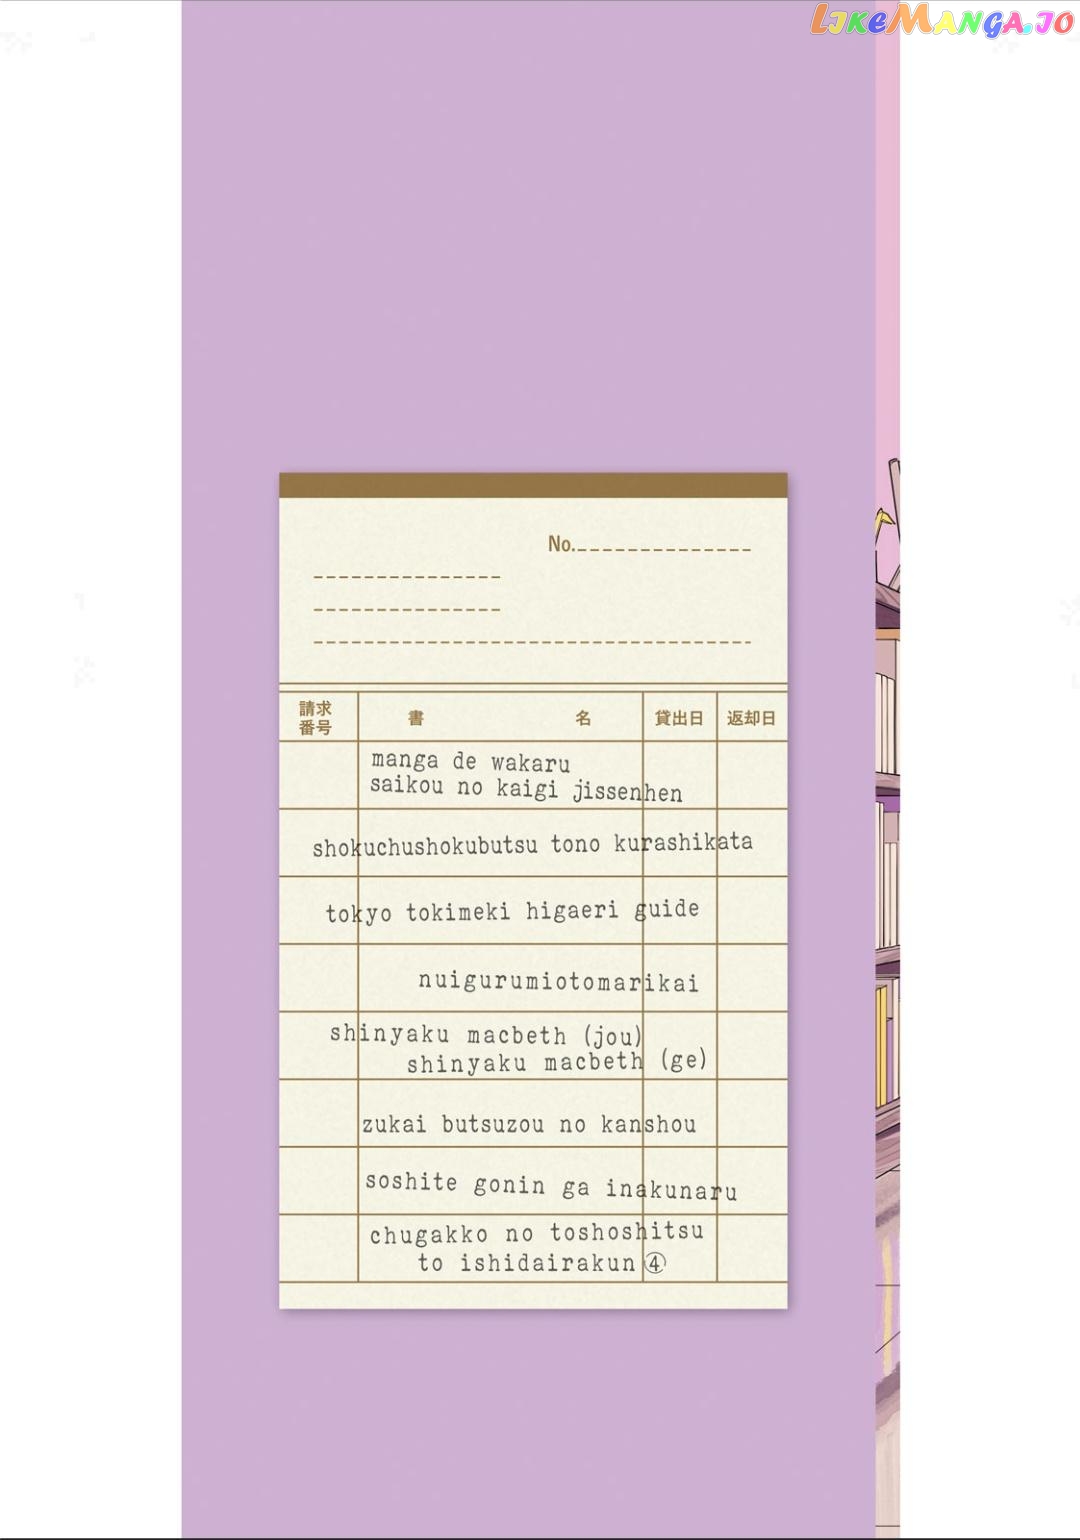 LIKEMANGA.IO
No.
請求
番号
書 名
貸出日
返却日
manga de wakaru
saikou no kaigi jissenhen
shokuchushokubutsu tono kurashikata
tokyo tokimeki higaeri guide
nuigurumiotomarikai
shinyaku macbeth (jou)
shinyaku macbeth (ge)
zukai butsuzou no kanshou
soshite gonin ga inakunaru
chugakko no toshoshitsu
to ishidairakun④